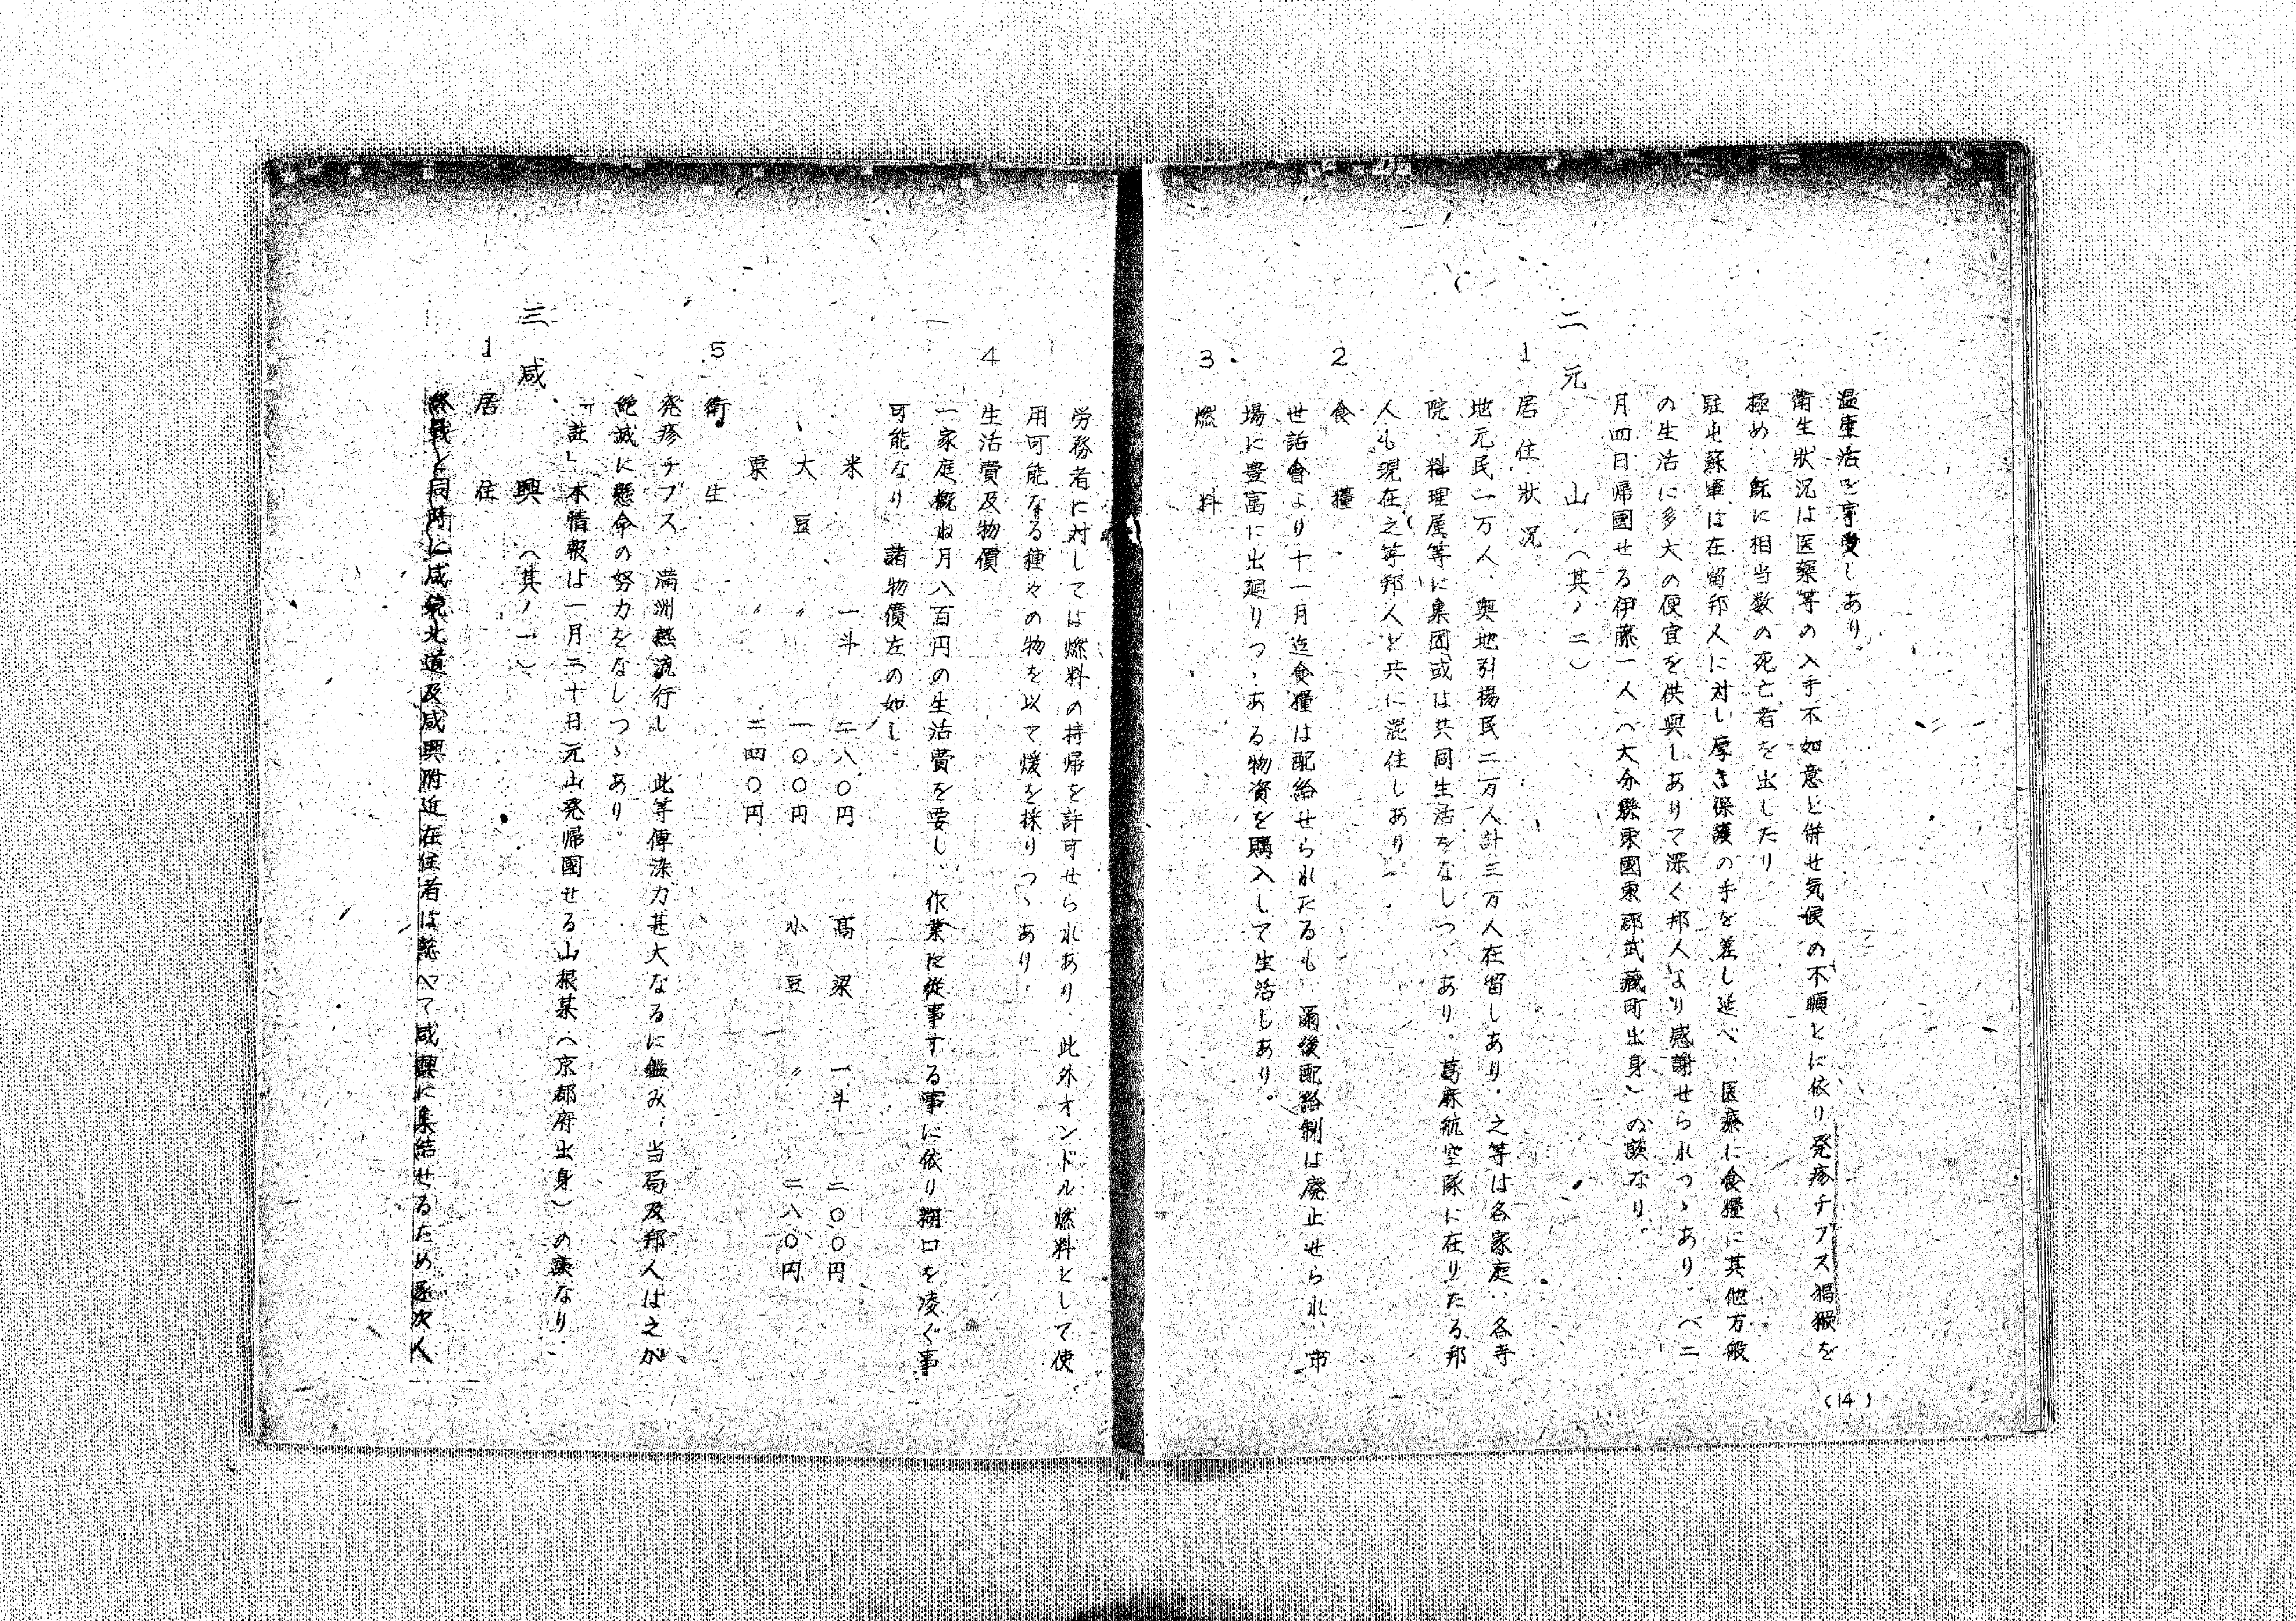 温突生活を享受しあり。
衛生狀況は医藥等の入手不如意と併せ気候の不順とに依り発疹チフス猖獗を
極め、既に相当数の死亡者を出したり
駐屯蘇軍は在留邦人に対し厚き保護の手を差し延べ、医療に食糧に其他万般
の生活に多大の便宜を供與しありて深く邦人より感謝せられつゝあり。(二
月四日帰國せる伊藤一人(大分縣東國東郡武藏町出身)の談なり。
二 元山(其ノ二)
1 居住狀況
地元民一万人、奥地引揚民二万人計三万人在留しあり。之等は各家庭、各寺
院、料理屋等に集団或は共同生活をなしつゝあり。葛麻航空隊に在りたる邦
人も現在之等邦人と共に混住しあり。
2 食糧
世話會より十一月迄食糧は配給せられたるも 爾後配給制は廃止せられ、市
場に豊富に出廻りつゝある物資を購入して生活しあり。
3 燃料
労務者に対しては燃料の持帰を許可せられあり、此外オンドル燃料として使
用可能なる種々の物を以て煖を採りつゝあり。
4 生活費及物價
一家庭概ね月八百円の生活費を要し、作業に従事する事に依り糊口を凌ぐ事
可能なり、諸物價左の如し
米 一斗 二八〇円 高粱 一斗 二〇〇円
大豆 〃 一〇〇円 小豆 〃 二八〇円
粟 〃 二四〇円
5 衛生
発疹チブス、満洲熱流行し 此等傳染力甚大なるに鑑み、当局及邦人は之が
絶滅に懸命の努力をなしつゝあり。
「註」本情報は一月二十日元山発帰國せる山根某(京都府出身)の談なり。
三 咸興(其ノ一)
1 居住
終戰と同時に咸鏡北道及咸興附近在住者は總べて咸興に集結せるため逐次人
(14)